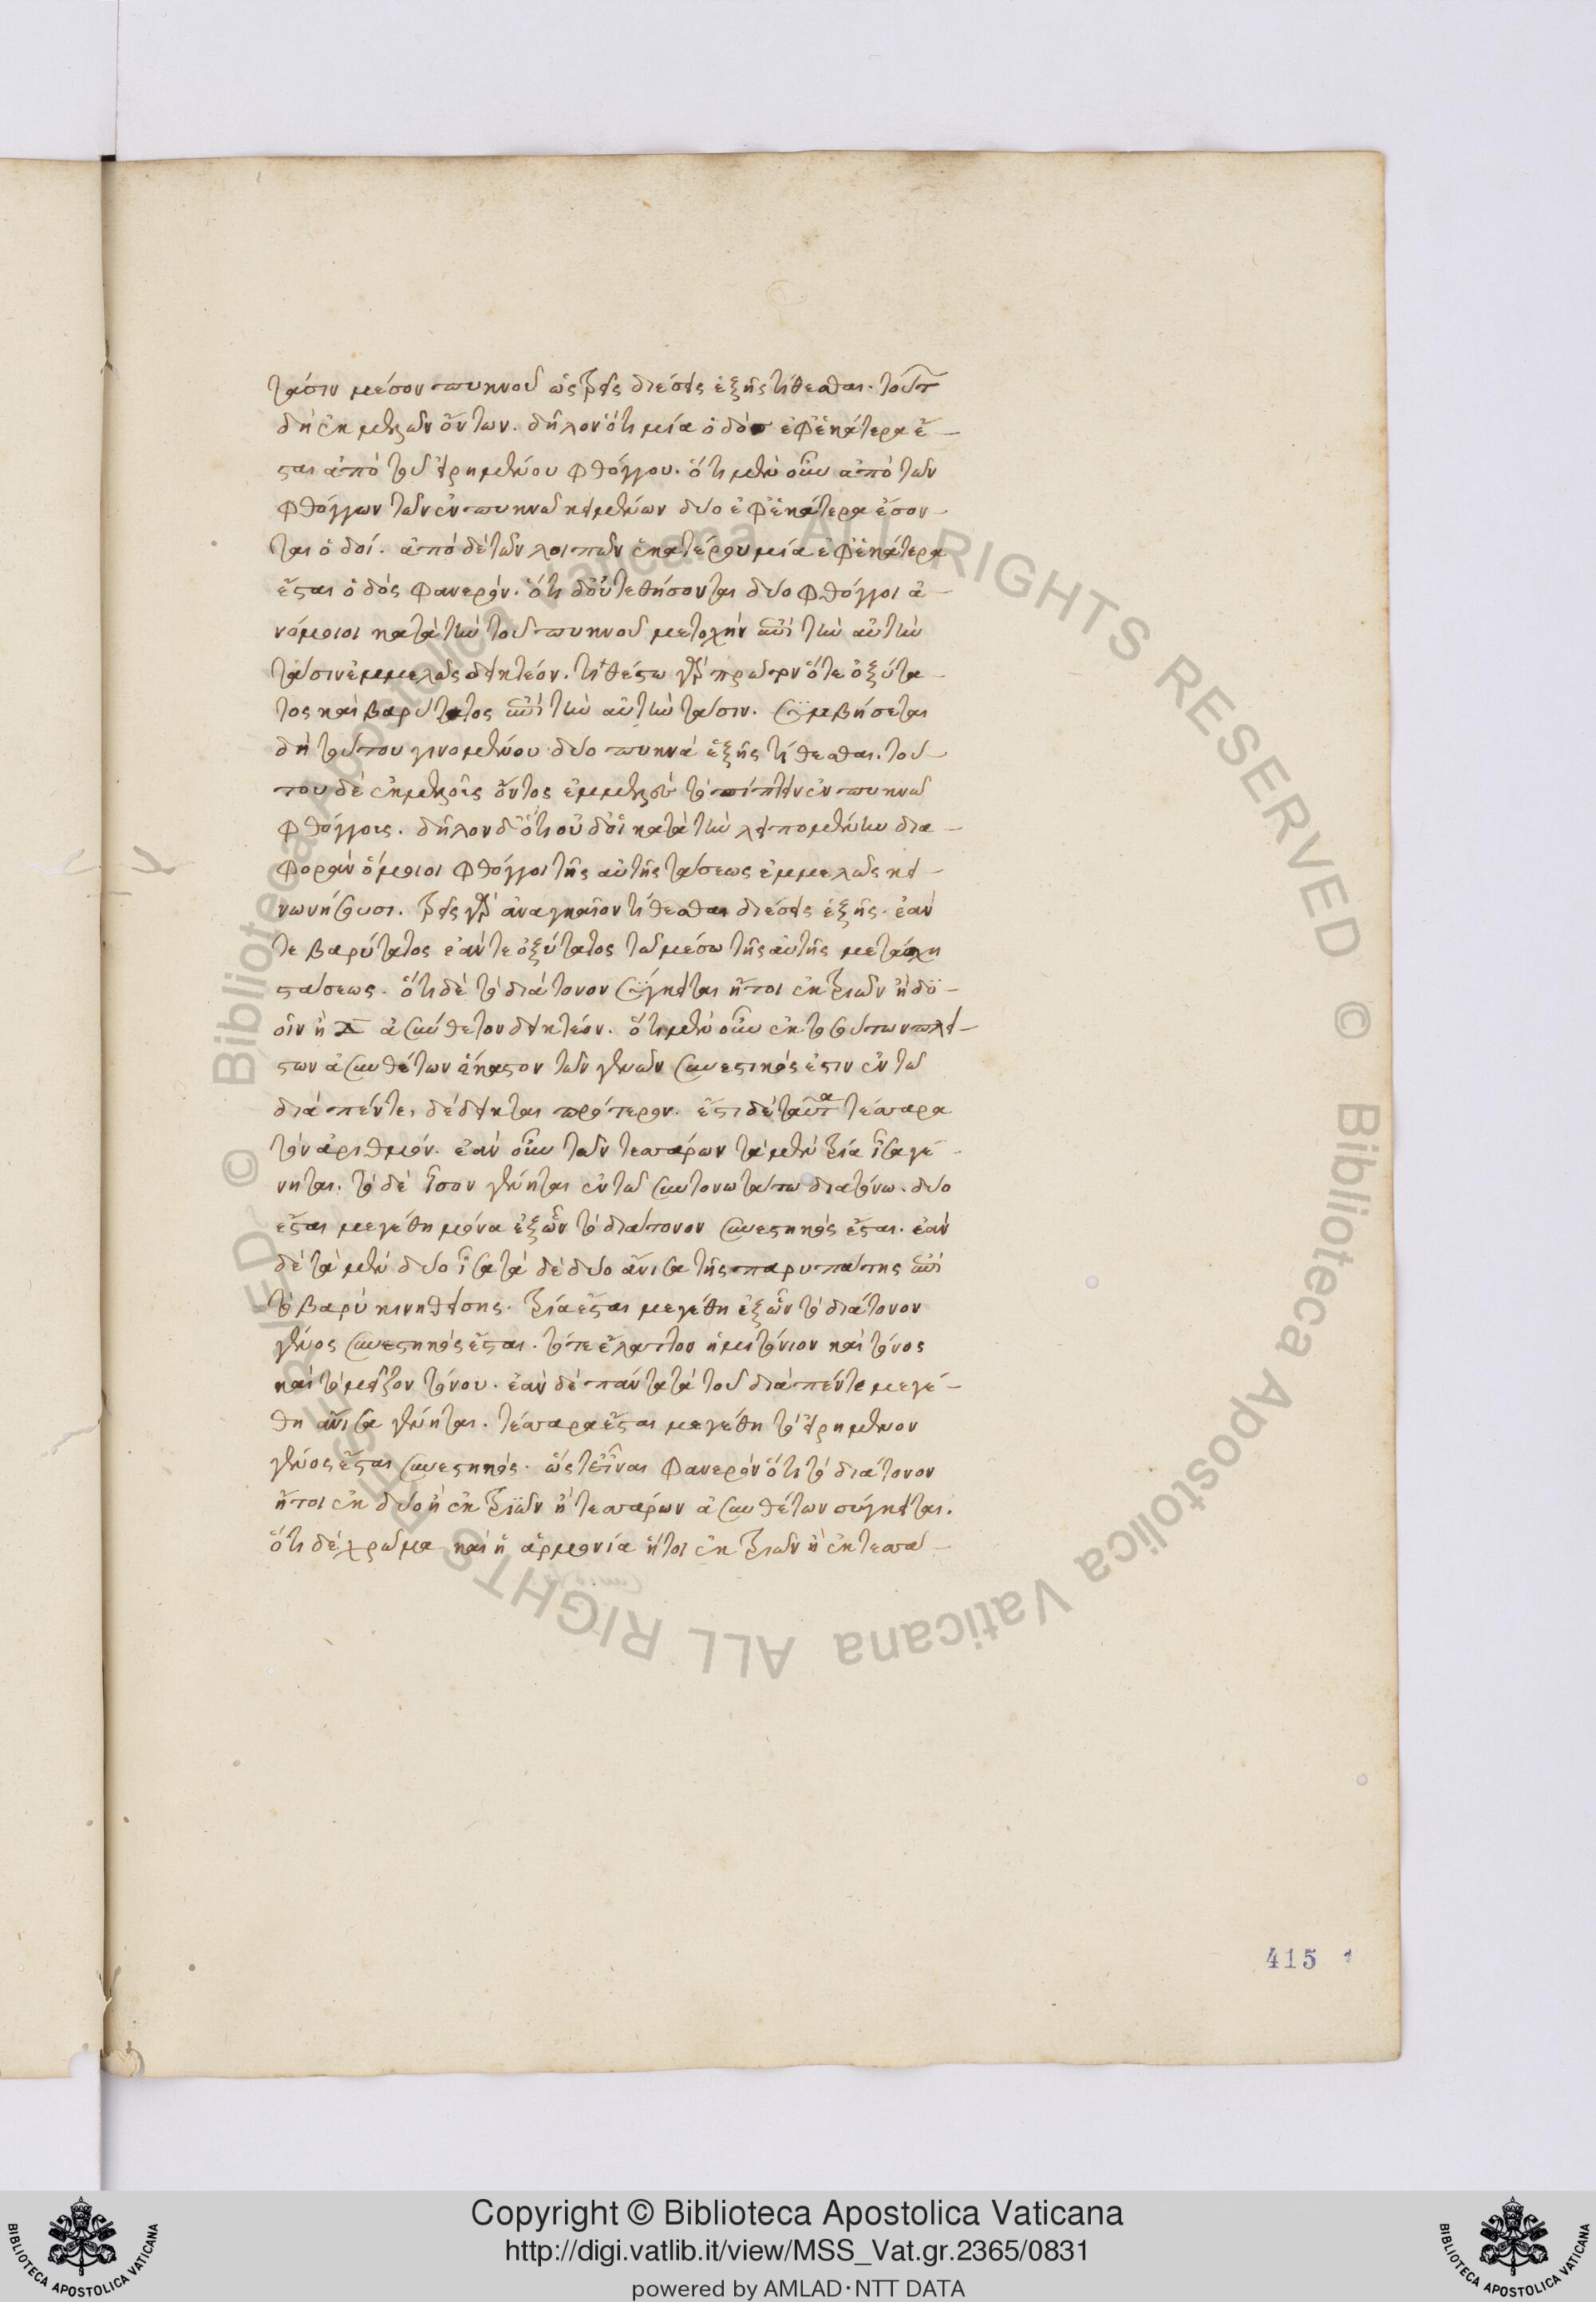 τάσιν μέσον πυκνοῦ ὥς τρεῖς διέσεις ἑξῆς τίθεσθαι. τούτ
δὴ ἐκμελῶν ὄντων. δῆλον ὅτι μία ὁδὸσ ἐφ ἑκάτερα ἔ-
σται ἀπὸ τοῦ εἰρημένου φθόγγου. ὅτι μὲν οὖν ἀπὸ τῶν
φθόγγων τῶν ἐν πυκνῶ κειμένων δύο ἐφ ἑκάτερα ἔσον-
ται ὁδοί. ἀπὸ δὲ τῶν λοιπῶν ἑκατέρου μία ἐφ ἑκάτερα
ἔσται ὁδὸς φανερόν. ὅτι δ οὐ τεθήσονται δύο φθόγγοι ἀ-
νόμοιοι κατὰ τὴν τοῦ πυκνοῦ μετοχὴν ἐπὶ τὴν αὐτὴν
τάσιν ἐμμελῶς δεικτέον. τιθέσω γὰρ πρῶτον ὅτε ὀξύτα-
τος καὶ βαρύτατος ἐπὶ τὴν αὐτὴν τάσιν. συμβήσεται
δὴ τούτου γινομένου δύο πυκνὰ ἑξῆς τίθεσθαι. τού-
του δὲ ἐκμελοῖς ὄντος ἐμμελοῦ τὸ πίπτειν ἐν πυκνῶ
φθόγγοις. δῆλον δ ὅτι οὐδ οἱ κατὰ τὴν λειπομένην δια-
φορὰν ὅμοιοι φθόγγοι τῆς αὐτῆς τάσεως ἐμμελῶς κει-
νωνήσουσι. τρεῖς γὰρ ἀναγκαῖον τίθεσθαι διέσεις ἑξῆς. ἐάν
τε βαρύτατος ἐάν τε ὀξύτατος τῶ μέσω τῆς αὐτῆς μετάσχη
στάσεως. ὅτι δὲ τὸ διάτονον σύγκειται ἤτοι ἐκ τριῶν ἢ δυ-
οῖν ἢ Δ ἀσύνθετον δεικτέον. ὅτι μὲν οὖν ἐκ τοσούτων πλεί-
στων ἀσυνθέτων ἕκαστον τῶν γενῶν συνεστικός ἐστιν ἐν τῶ
διὰ πέντε, δέδεικται πρότερον. ἔστι δὲ ταῦτα τέσσαρα
τὸν ἀριθμόν. ἐὰν οὖν τῶν τεσσάρων τὰ μὲν τρία ἴσα γέ-
νηται. τὸ δὲ ἴσον γένηται ἐν τῶ συντονωτάτω διατόνω. δύο
ἔσται μεγέθη μόνα ἐξ ὧν τὸ διάτονον συνεστηκὸς ἔσται. ἐὰν
δὲ τὰ μὲν δύο ἴσα τὰ δὲ δύο ἄνισα τῆς παρυπάτης ἐπὶ
τὸ βαρὺ κινηθείσης. τρία ἔσται μεγέθη ἐξ ὧν τὸ διάτονον
γένος συνεστηκὸς ἔσται. τό τε ἔλαττον ἡμιτόνιον καὶ τόνος
καὶ τὸ μεῖζον τόνου. ἐὰν δὲ πάντα τὰ τοῦ διὰ πέντε μεγέ-
θη ἄνισα γένηται. τέσσαρα ἔσται μεγέθη τὸ εἰρημένον
γένος ἔσται συνεστηκός. ὥστ εἶναι φανερὸν ὅτι τὸ διάτονον
ἤτοι ἐκ δύο ἢ ἐκ τριῶν ἢ τεσσάρων ἀσυνθέτων σύγκειται.
ὅτι δὲ χρῶμα καὶ ἡ ἁρμονία ἤτοι ἐκ τριῶν ἢ ἐκ τεσσά-
415
© Biblioteca Apostolica Vaticana ALL RIGHTS RESERVED © Biblioteca Apostolica Vaticana ALL RIGHTS RESERVED
Copyright © Biblioteca Apostolica Vaticana
http://digi.vatlib.it/view/MSS_Vat.gr.2365/0831
powered by AMLAD·NTT DATA
BIBLIOTECA APOSTOLICA VATICANA
BIBLIOTECA APOSTOLICA VATICANA